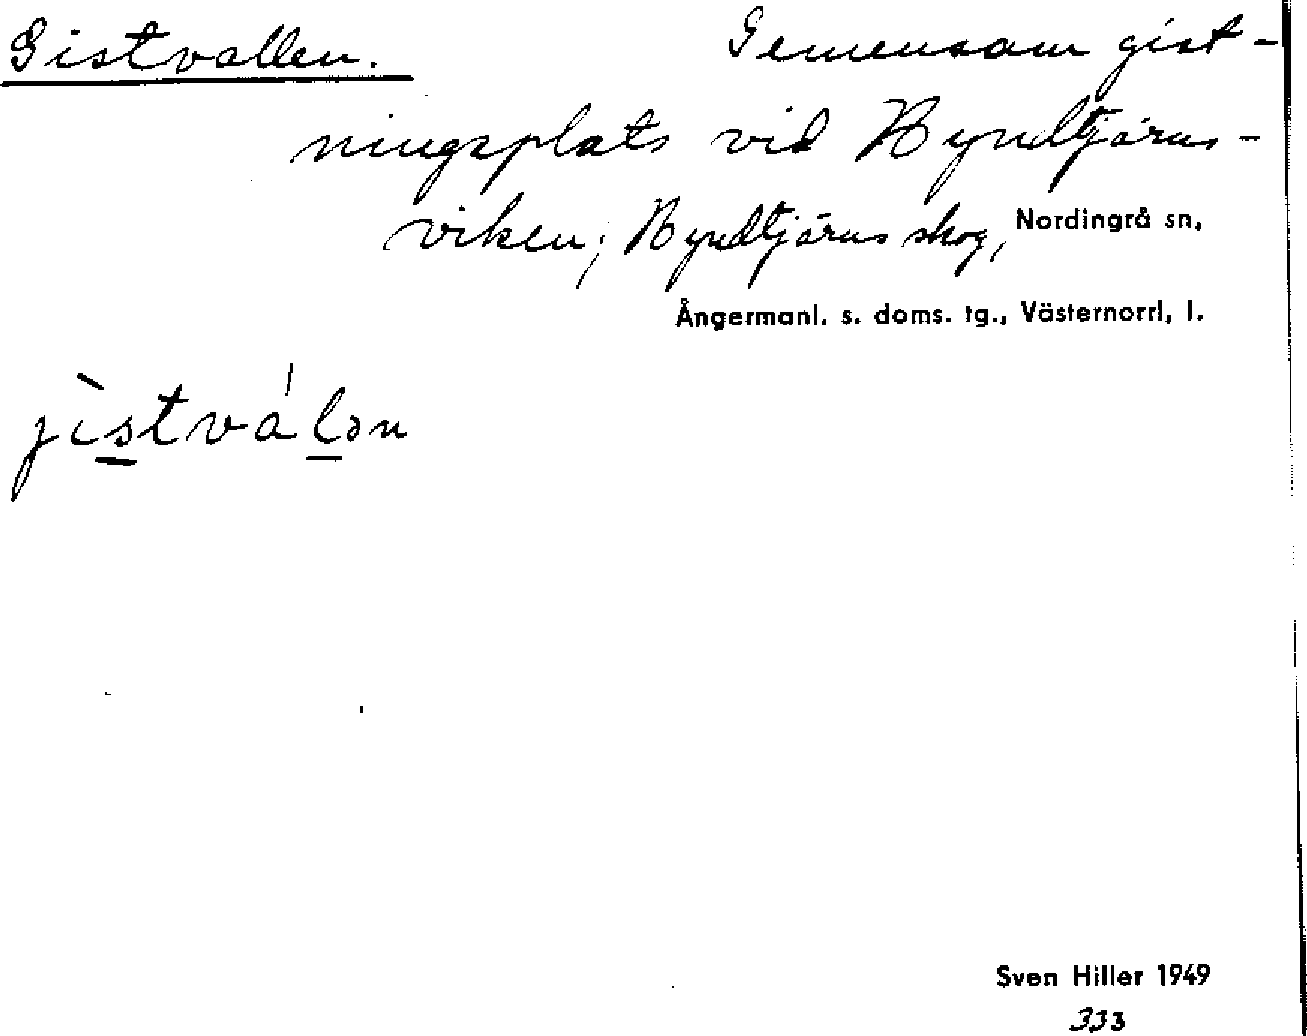 Gistvallen. Gemensam gist-
ningsplats vid Byndtjärns-
viken; Byndtjärns skog, Nordingrå sn,
Ångermanl. s. doms. tg., Västernorrl, l.
jìstvál̠ən
Sven Hiller 1949
333